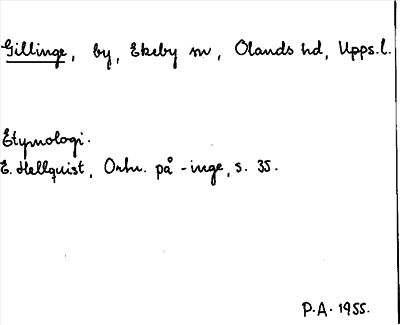 Gillinge, by, Ekeby sn, Olands hd, Upps.l.
Etymologi.
E. Hellquist, Ortn. på -inge, s. 35.
P.A. 1955.